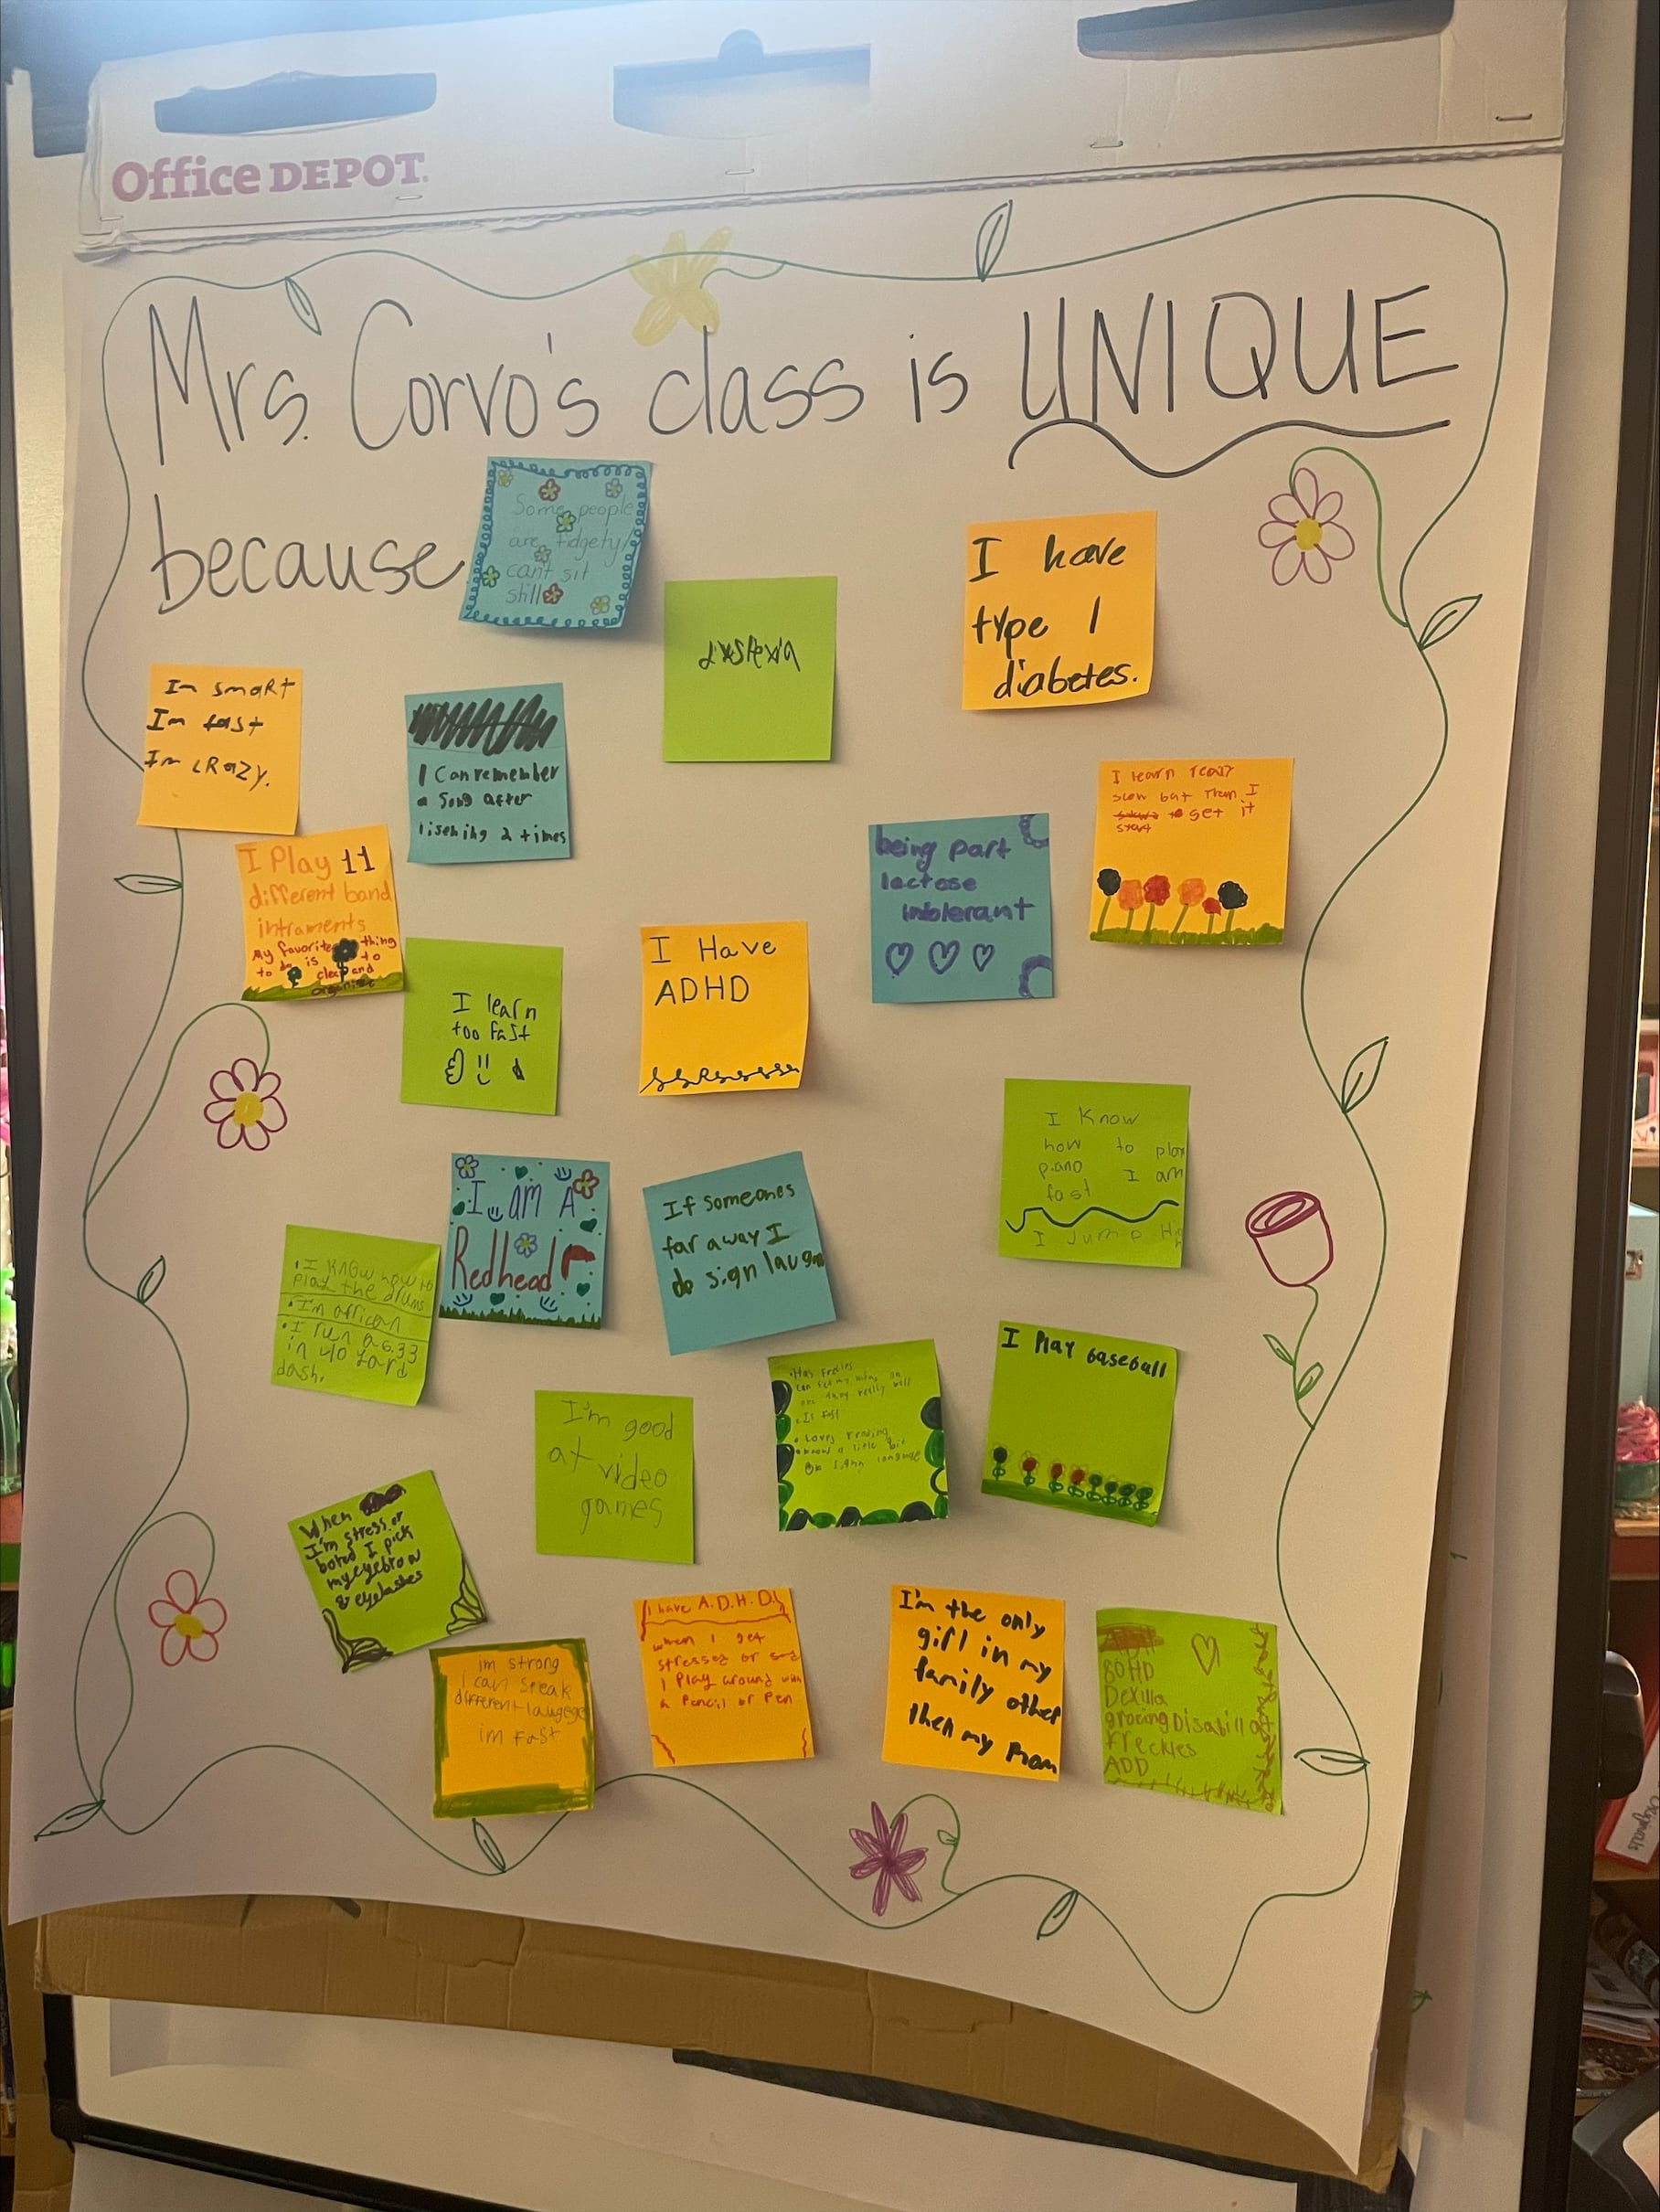 Office DEPOT
Mrs. Corvo's class is UNIQUE
because
Some people
are fidgety/
can't sit
still
dyslexia
I have
type 1
diabetes.
Im smaRt
Im fast
Im cRazy.
I Can remember
a Song after
lisening 2 times
I learn realy
slow but then I
get it
being part
lactose
intolerant
I Play 11
different band
intraments
My favorite thing
to do is to
clean and
organize
I learn
too fast
I Have
ADHD
I Know
how to play
piano I am
fast
I Jump Hi
I am A
Redhead
If someones
far away I
do sign
• I KNOW how to
play the drums
• I'm african
• I run a 6.33
in 40 yard
dash.
I Play baseball
• Is fast
• Loves reading
I'm good
at video
games
When
I'm stress or
bored I pick
my eyebrow
& eyelashes
I have A.D.H.D!
when I get
stressed or sad
I Play around with
a Pencil or Pen
I'm the only
girl in my
family other
then my mom
im strong
i can speak
different laugege
im fast
Freckles
ADD